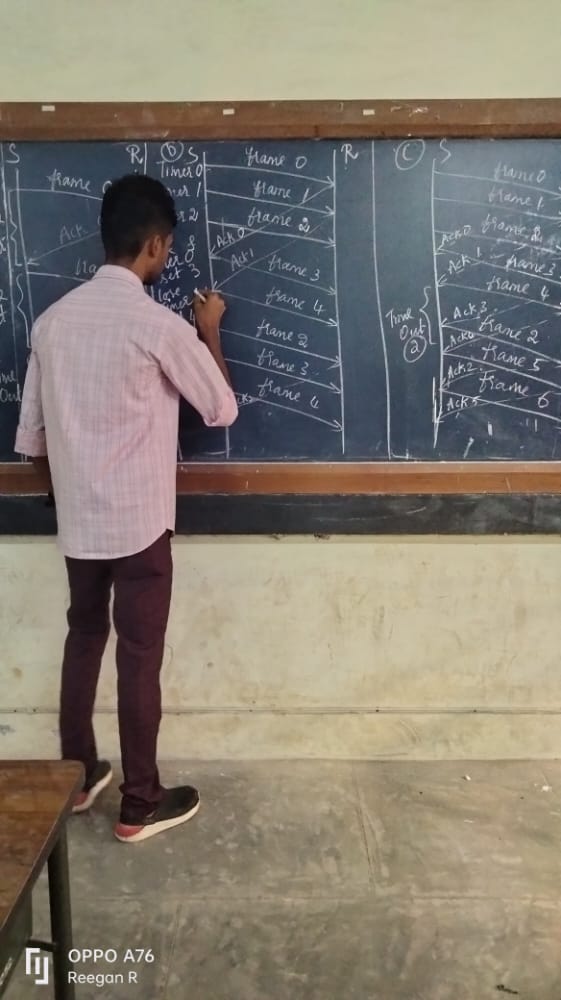 S
R
frame
Ack
Out
b
S
R
Timer 0
frame 0
frame 1
2
frame 2
Ack 0
Ack 1
frame 3
3
frame 4
frame 2
frame 3
frame 4
C
S
frame 0
frame 1
Ack 0
Ack 1
frame 3
frame 4
Time
Out
2
Ack 3
frame 2
frame 5
Ack 2
frame 6
Ack 5
OPPO A76
Reegan R